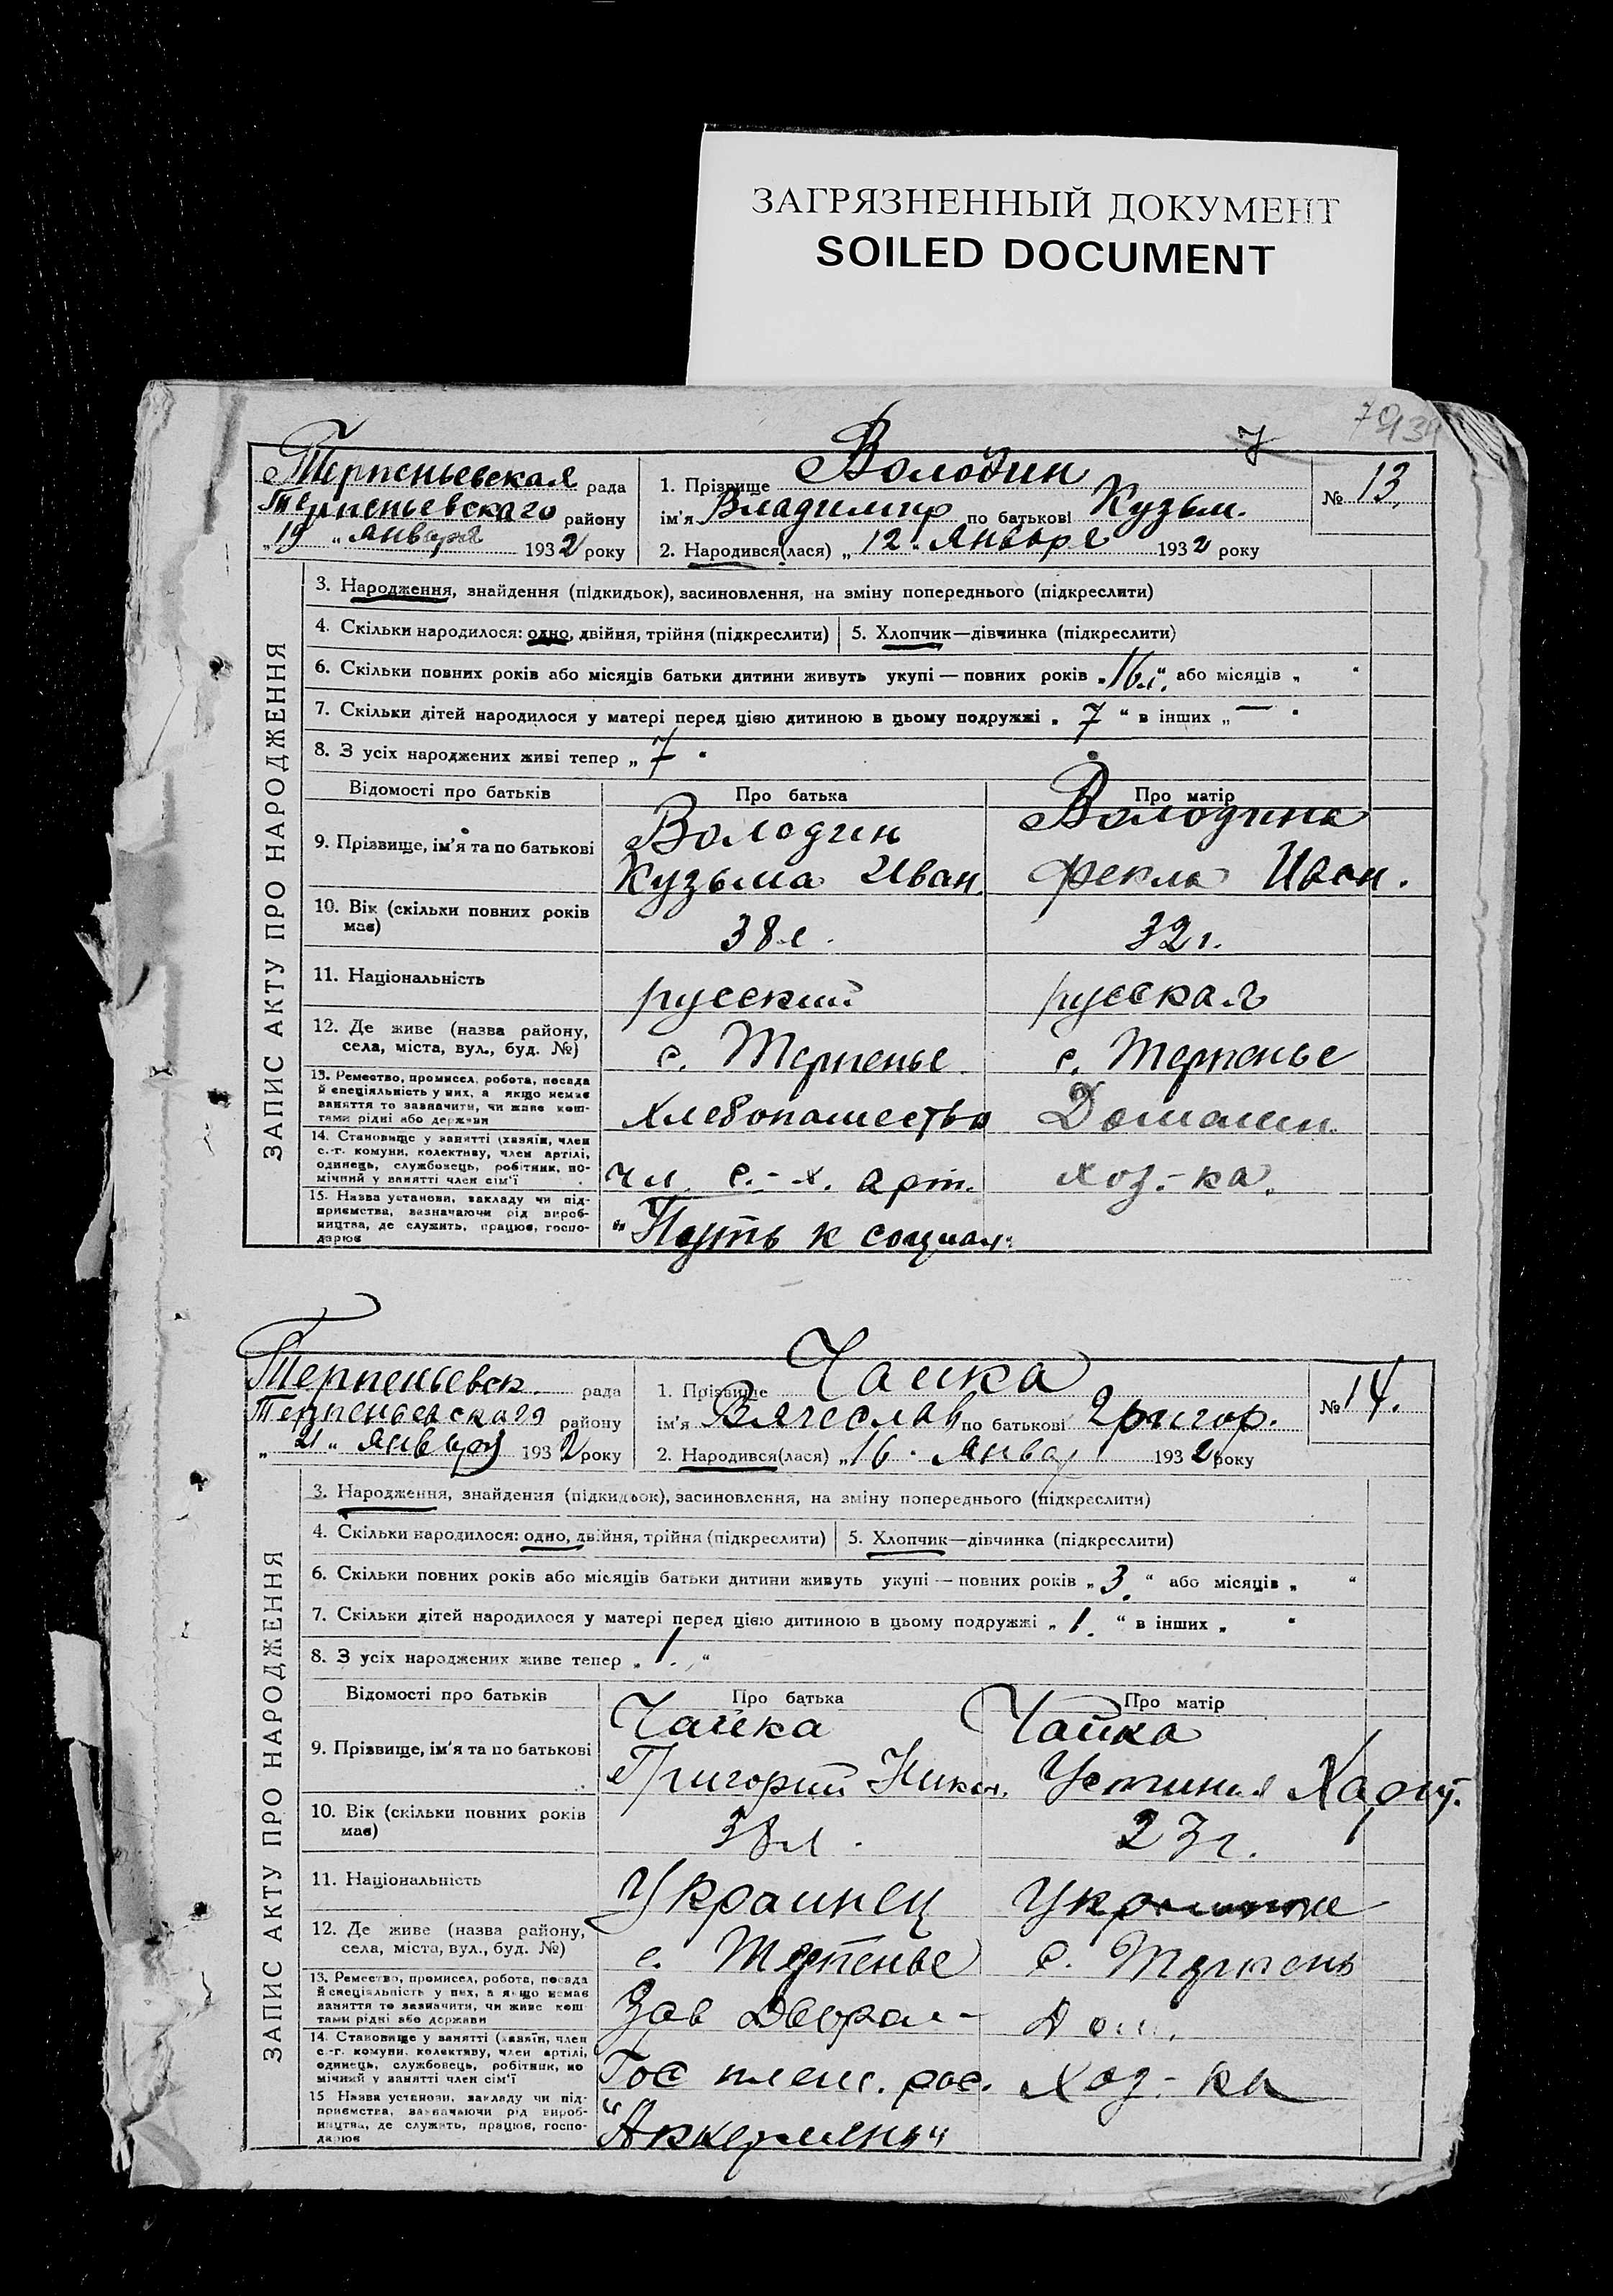 ЗАГРЯЗНЕННЫЙ ДОКУМЕНТ
SOILED DOCUMENT
7
Терпеньевская рада
Терпеньевского району
„19“ января 1932 року
1. Прізвище Володин
ім'я Владимир по батькові Кузьм.
2. Народився(лася) „12“ января 1932 року
№ 13
ЗАПИС АКТУ ПРО НАРОДЖЕННЯ
3. Народження, знайдення (підкидьок), засиновлення, на зміну попереднього (підкреслити)
4. Скільки народилося: одно, двійня, трійня (підкреслити) 5. Хлопчик—дівчинка (підкреслити)
6. Скільки повних років або місяців батьки дитини живуть укупі — повних років „16“ або місяців „ “
7. Скільки дітей народилося у матері перед цією дитиною в цьому подружжі „7“ в інших „—“
8. З усіх народжених живі тепер „7“
Відомості про батьків Про батька Про матір
9. Прізвище, ім'я та по батькові Володин Кузьма Иван. Володина Фекла Иван.
10. Вік (скільки повних років має) 38 л. 32 г.
11. Національність русский русская
12. Де живе (назва району, села, міста, вул., буд. №) с. Терпенье с. Терпенье
13. Ремество, промисел, робота, посада й спеціяльність у них, а якщо немає заняття то зазначити, чи живе коштами рідні або держави Хлебопашество Домашн.
14. Становище у занятті (хазяїн, член с.-г. комуни, колективу, член артілі, одинець, службовець, робітник, помічний у занятті член сім'ї чл. с.-х. арт. хоз-ка.
15. Назва установи, закладу чи підприємства, зазначаючи рід виробництва, де служить, працює, господарює "Путь к социал.
Терпеньевск. рада
Терпеньевского району
„21“ января 1932 року
1. Прізвище Чайка
ім'я Вячеслав по батькові Григор.
2. Народився(лася) „16“ янва 1932 року
№ 14.
ЗАПИС АКТУ ПРО НАРОДЖЕННЯ
3. Народження, знайдення (підкидьок), засиновлення, на зміну попереднього (підкреслити)
4. Скільки народилося: одно, двійня, трійня (підкреслити) 5. Хлопчик—дівчинка (підкреслити)
6. Скільки повних років або місяців батьки дитини живуть укупі — повних років „3.“ або місяців „ “
7. Скільки дітей народилося у матері перед цією дитиною в цьому подружжі „1.“ в інших „ “
8. З усіх народжених живе тепер „1.“
Відомості про батьків Про батька Про матір
9. Прізвище, ім'я та по батькові Чайка Григорий Никол. Чайка Устиния
10. Вік (скільки повних років має) 38 л. 23 г.
11. Національність Украинец Украинка
12. Де живе (назва району, села, міста, вул., буд. №) с. Терпенье с. Терпень
13. Ремество, промисел, робота, посада й спеціяльність у них, а якщо немає заняття то зазначити, чи живе коштами рідні або держави Зав Дом.
14. Становище у занятті (хазяїн, член с.-г. комуни, колективу, член артілі, одинець, службовець, робітник, помічний у занятті член сім'ї Гос плем. рос. хоз-ка
15 Назва установи, закладу чи підприємства, зазначаючи рід виробництва, де служить, працює, господарює "Аккермень"